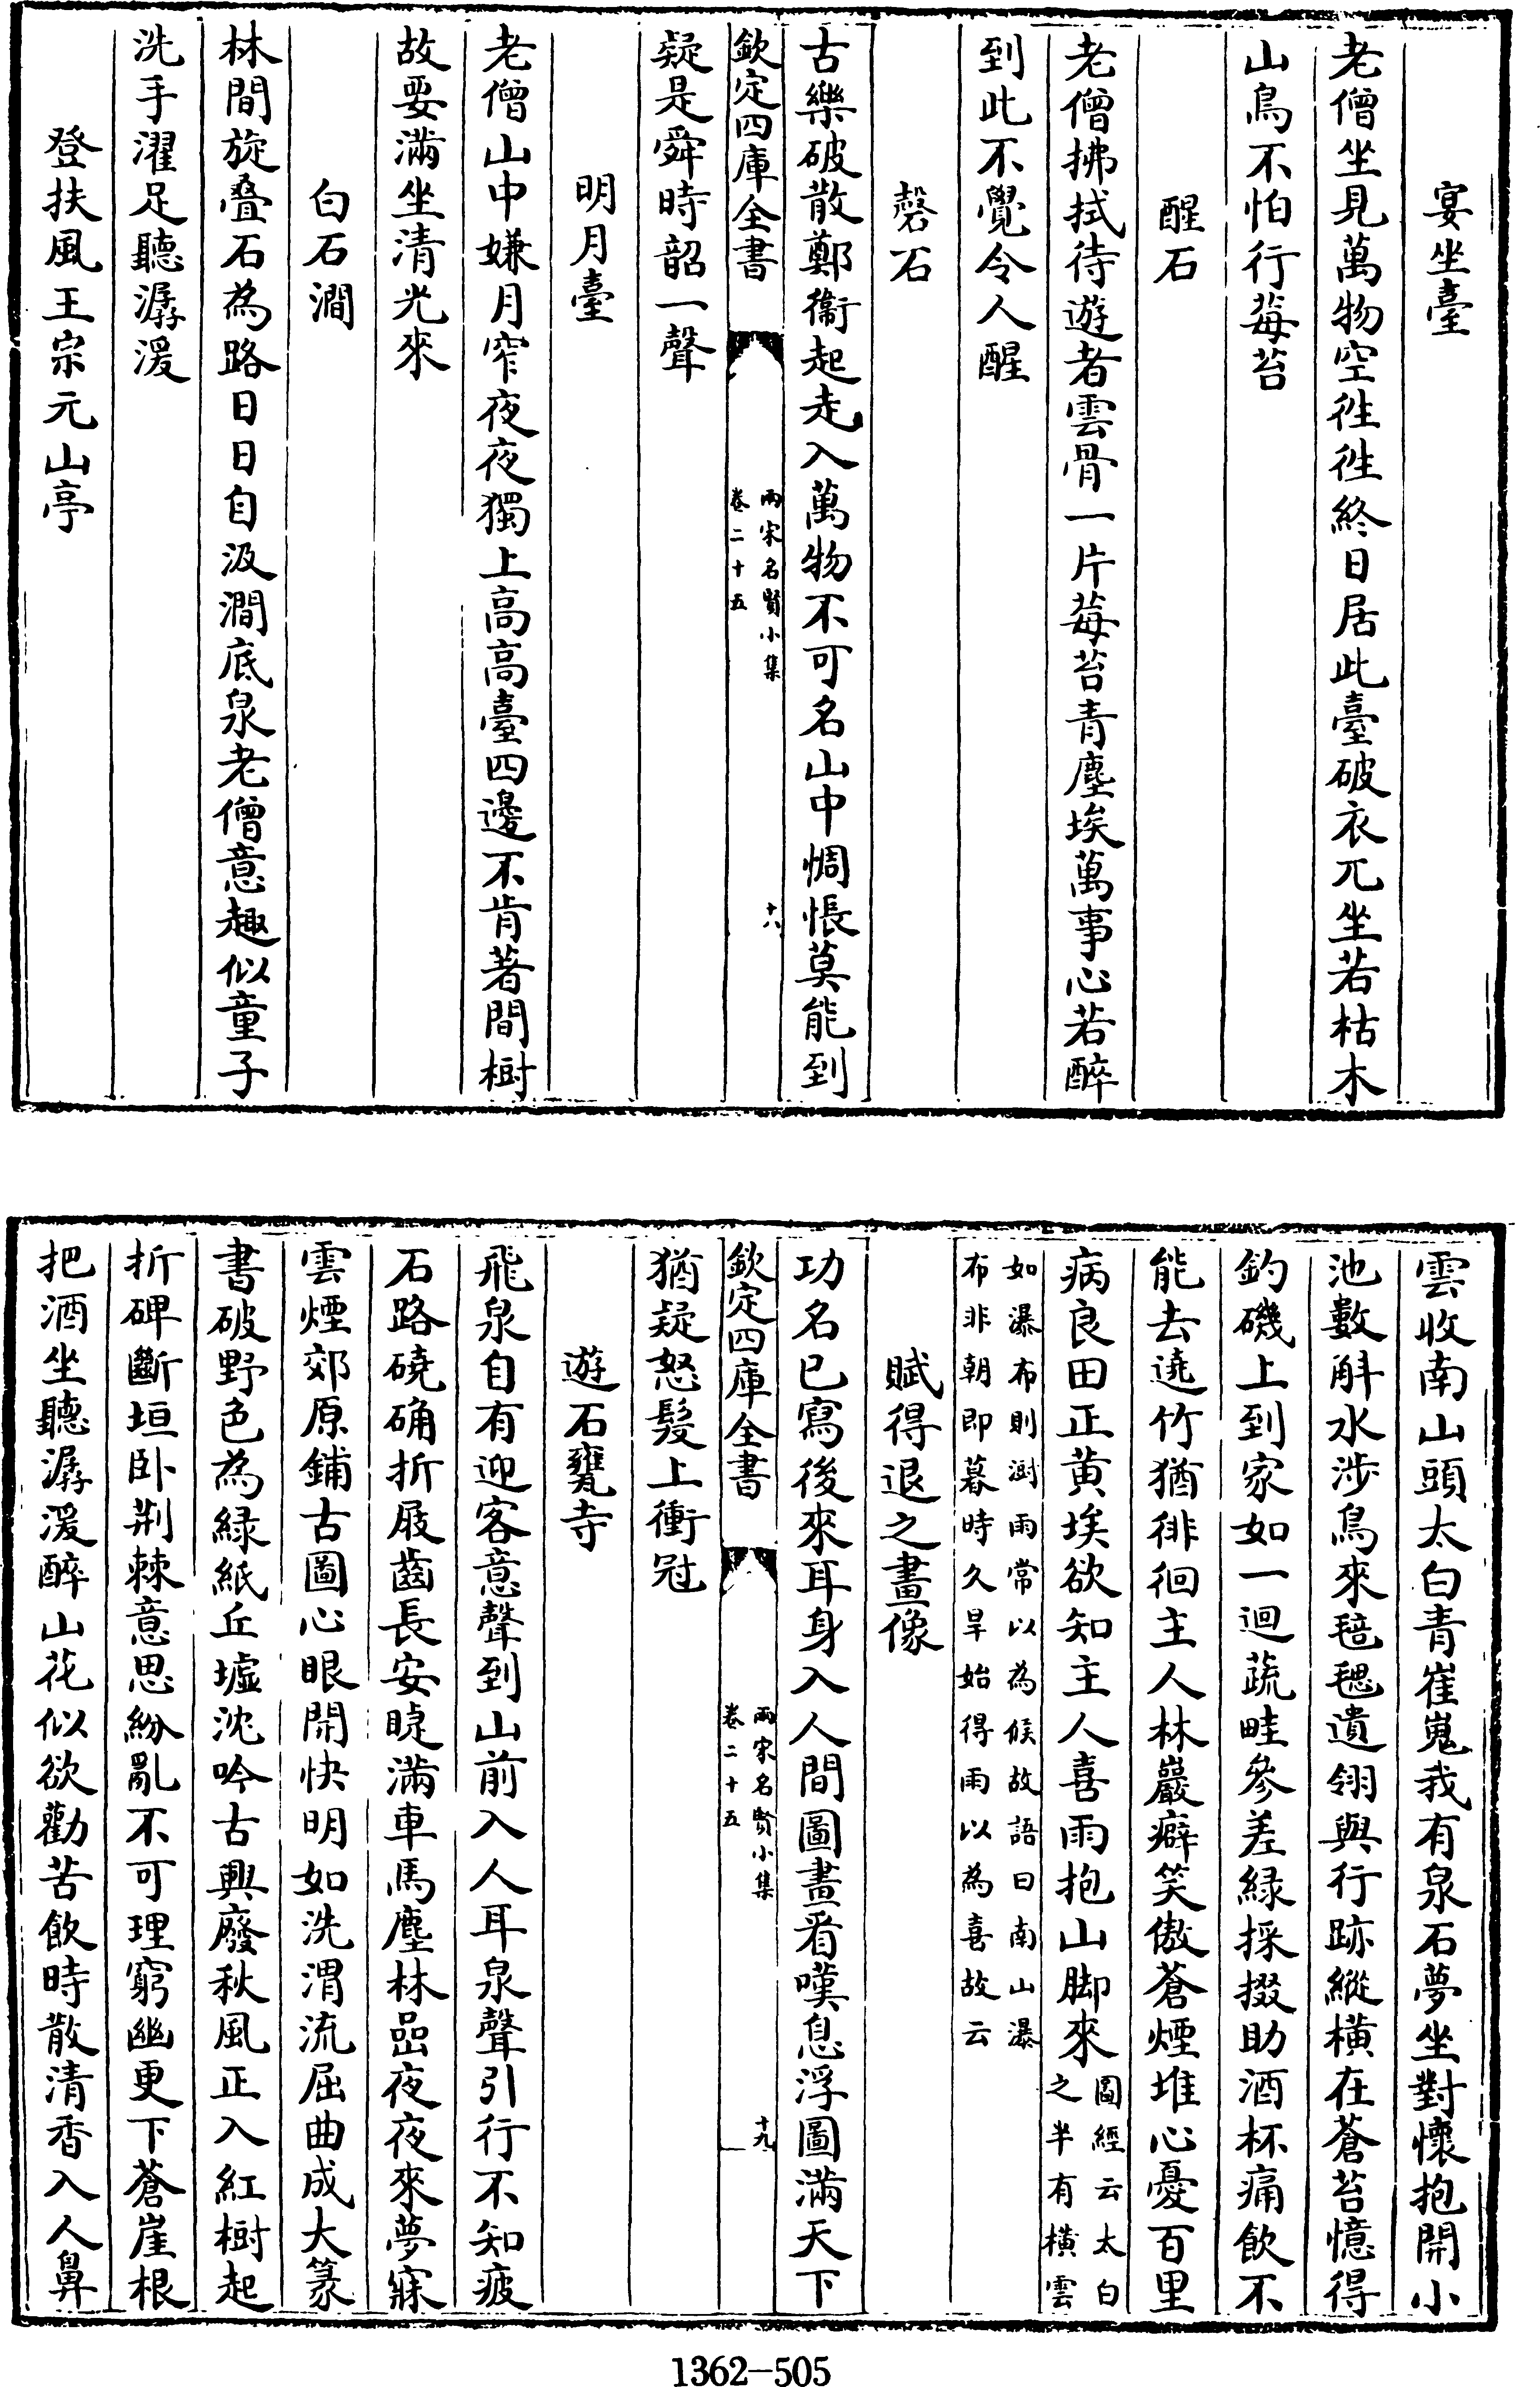 宴坐臺
老僧坐見萬物空徃徃終日居此臺破衣兀坐若枯木
山鳥不怕行莓苔
醒石
老僧拂拭待遊者雲骨一片莓苔青塵埃萬事心若醉
到此不覺令人醒
磬石
古樂破散鄭衞起走入萬物不可名山中惆悵莫能到
欽定四庫全書
兩宋名賢小集
卷二十五
十八
疑是舜時韶一聲
明月臺
老僧山中嫌月窄夜夜獨上高高臺四邊不肯著閒樹
故要滿坐清光來
白石澗
林間旋疊石為路日日自汲澗底泉老僧意趣似童子
洗手濯足聽潺湲
登扶風王宗元山亭
雲收南山頭太白青崔嵬我有泉石夢坐對懷抱開小
池數斛水涉鳥來毰毸遺翎與行跡縱横在蒼苔憶得
釣磯上到家如一迴蔬畦參差緑採掇助酒杯痛飲不
能去遶竹猶徘徊主人林巖癖笑傲蒼煙堆心憂百里
病良田正黄埃欲知主人喜雨抱山脚來圖經云太白
之半有横雲
如瀑布則澍雨常以為候故語曰南山瀑
布非朝即暮時久旱始得雨以為喜故云
賦得退之畫像
功名已寫後來耳身入人間圖畫看嘆息浮圖滿天下
欽定四庫全書
兩宋名賢小集
卷二十五
十九
猶疑怒髮上衝冠
遊石甕寺
飛泉自有迎客意聲到山前入人耳泉聲引行不知疲
石路磽确折屐齒長安睫滿車馬塵林嵒夜夜來夢寐
雲煙郊原鋪古圖心眼開快明如洗渭流屈曲成大篆
書破野色為緑紙丘墟沈吟古興廢秋風正入紅樹起
折碑斷垣卧荆棘意思紛亂不可理窮幽更下蒼崖根
把酒坐聽潺湲醉山花似欲勸苦飲時散清香入人鼻
1362-505